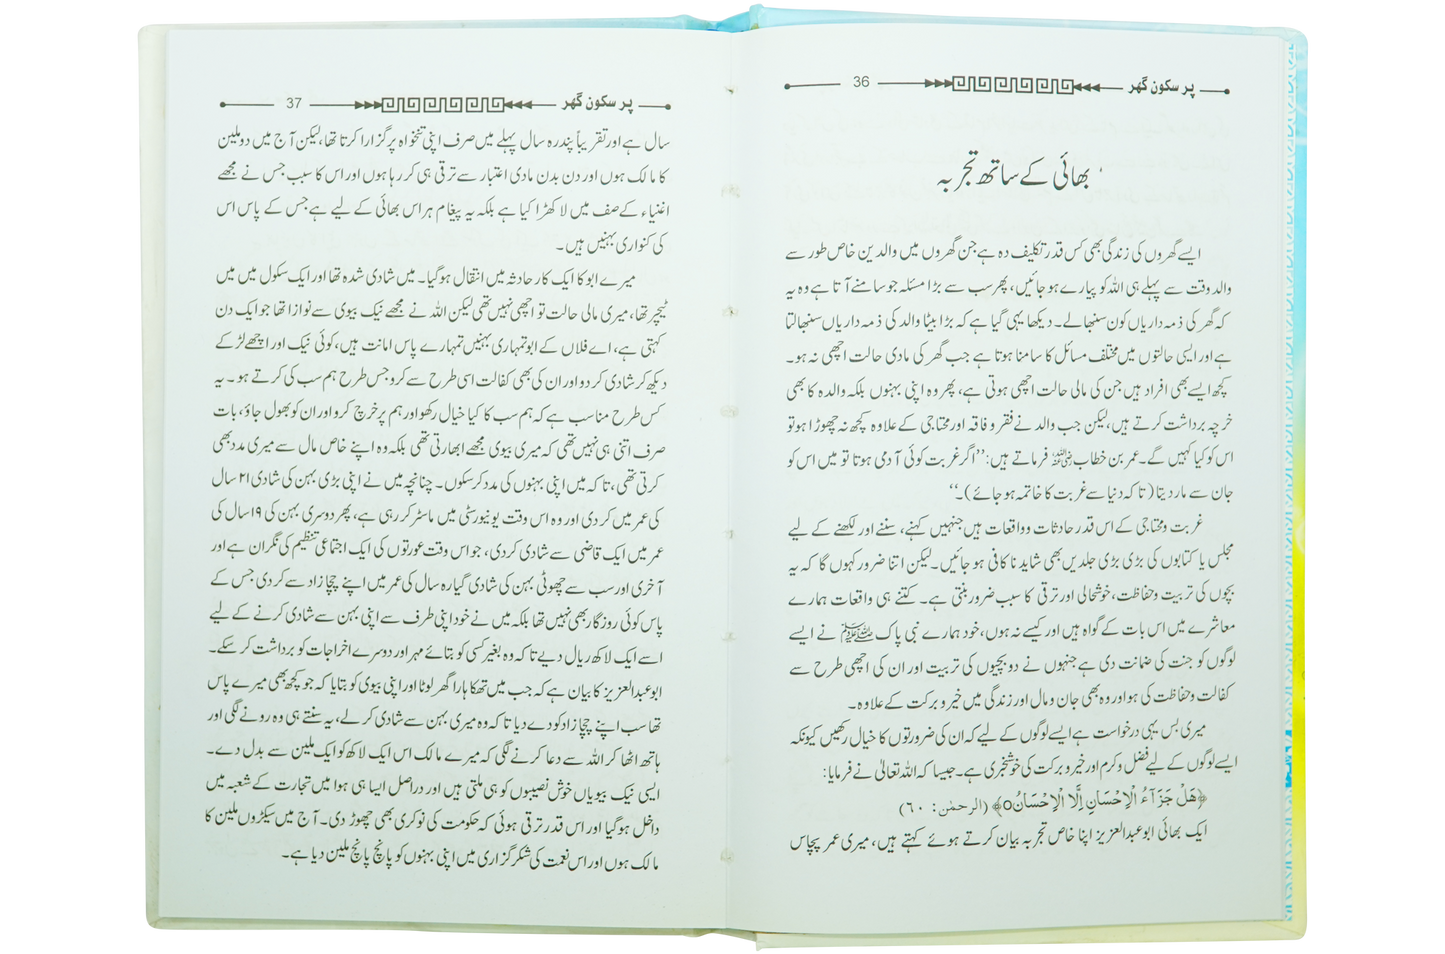 پر سکون گھر 36
بھائی کے ساتھ تجربہ
ایسے گھروں کی زندگی بھی کس قدر تکلیف دہ ہے جن گھروں میں والدین خاص طور سے
والد وقت سے پہلے ہی اللہ کو پیارے ہو جائیں، پھر سب سے بڑا مسئلہ جو سامنے آتا ہے وہ یہ
کہ گھر کی ذمہ داریاں کون سنبھالے۔ دیکھا یہی گیا ہے کہ بڑا بیٹا والد کی ذمہ داریاں سنبھالتا
ہے اور ایسی حالتوں میں مختلف مسائل کا سامنا ہوتا ہے جب گھر کی مادی حالت اچھی نہ ہو۔
کچھ ایسے بھی افراد ہیں جن کی مالی حالت اچھی ہوتی ہے، پھر وہ اپنی بہنوں بلکہ والدہ کا بھی
خرچہ برداشت کرتے ہیں، لیکن جب والد نے فقر و فاقہ اور محتاجی کے علاوہ کچھ نہ چھوڑا ہو تو
اس کو کیا کہیں گے۔ عمر بن خطاب رضی اللہ عنہ فرماتے ہیں: ’’اگر غربت کوئی آدمی ہوتا تو میں اس کو
جان سے مار دیتا (تاکہ دنیا سے غربت کا خاتمہ ہو جائے)۔‘‘
غربت و محتاجی کے اس قدر حادثات و واقعات ہیں جنہیں کہنے، سننے اور لکھنے کے لیے
مجلس یا کتابوں کی بڑی بڑی جلدیں بھی شاید نا کافی ہو جائیں۔ لیکن اتنا ضرور کہوں گا کہ یہ
بچوں کی تربیت و حفاظت، خوشحالی اور ترقی کا سبب ضرور بنتی ہے۔ کتنے ہی واقعات ہمارے
معاشرے میں اس بات کے گواہ ہیں اور کیسے نہ ہوں، خود ہمارے نبی پاک ﷺ نے ایسے
لوگوں کو جنت کی ضمانت دی ہے جنہوں نے دو بچیوں کی تربیت اور ان کی اچھی طرح سے
کفالت و حفاظت کی ہو اور وہ بھی جان و مال اور زندگی میں خیر و برکت کے علاوہ۔
میری بس یہی درخواست ہے ایسے لوگوں کے لیے کہ ان کی ضرورتوں کا خیال رکھیں کیونکہ
ایسے لوگوں کے لیے فضل و کرم اور خیر و برکت کی خوشخبری ہے۔ جیسا کہ اللہ تعالیٰ نے فرمایا:
﴿هَلْ جَزَآءُ الْاِحْسَانِ اِلَّا الْاِحْسَانُo﴾ (الرحمٰن: ۶۰)
ایک بھائی ابو عبدالعزیز اپنا خاص تجربہ بیان کرتے ہوئے کہتے ہیں، میری عمر پچاس
پر سکون گھر 37
سال ہے اور تقریباً پندرہ سال پہلے میں صرف اپنی تنخواہ پر گزارا کرتا تھا، لیکن آج میں دو ملین
کا مالک ہوں اور دن بدن مادی اعتبار سے ترقی ہی کر رہا ہوں اور اس کا سبب جس نے مجھے
اغنیاء کے صف میں لا کھڑا کیا ہے بلکہ یہ پیغام ہر اس بھائی کے لیے ہے جس کے پاس اس
کی کنواری بہنیں ہیں۔
میرے ابو کا ایک کار حادثہ میں انتقال ہو گیا۔ میں شادی شدہ تھا اور ایک سکول میں میں
ٹیچر تھا، میری مالی حالت تو اچھی نہیں تھی لیکن اللہ نے مجھے نیک بیوی سے نوازا تھا جو ایک دن
کہتی ہے، اے فلاں کے ابو تمہاری بہنیں تمہارے پاس امانت ہیں، کوئی نیک اور اچھے لڑکے
دیکھ کر شادی کر دو اور ان کی بھی کفالت اسی طرح سے کرو جس طرح ہم سب کی کرتے ہو۔ یہ
کس طرح مناسب ہے کہ ہم سب کا کیا خیال رکھو اور ہم پر خرچ کرو اور ان کو بھول جاؤ، بات
صرف اتنی ہی نہیں تھی کہ میری بیوی مجھے ابھارتی تھی بلکہ وہ اپنے خاص مال سے میری مدد بھی
کرتی تھی، تاکہ میں اپنی بہنوں کی مدد کر سکوں۔ چنانچہ میں نے اپنی بڑی بہن کی شادی ۲۱ سال
کی عمر میں کر دی اور وہ اس وقت یونیورسٹی میں ماسٹر کر رہی ہے، پھر دوسری بہن کی ۱۹ سال کی
عمر میں ایک قاضی سے شادی کر دی، جو اس وقت عورتوں کی ایک اجتماعی تنظیم کی نگران ہے اور
آخری اور سب سے چھوٹی بہن کی شادی گیارہ سال کی عمر میں اپنے چچا زاد سے کر دی جس کے
پاس کوئی روزگار بھی نہیں تھا بلکہ میں نے خود اپنی طرف سے اپنی بہن سے شادی کرنے کے لیے
اسے ایک لاکھ ریال دیے تاکہ وہ بغیر کسی کو بتائے مہر اور دوسرے اخراجات کو برداشت کر سکے۔
ابو عبدالعزیز کا بیان ہے کہ جب میں تھکا ہارا گھر لوٹا اور اپنی بیوی کو بتایا کہ جو کچھ بھی میرے پاس
تھا سب اپنے چچا زاد کو دے دیا تاکہ وہ میری بہن سے شادی کر لے، یہ سنتے ہی وہ رونے لگی اور
ہاتھ اٹھا کر اللہ سے دعا کرنے لگی کہ میرے مالک اس ایک لاکھ کو ایک ملین سے بدل دے۔
ایسی نیک بیویاں خوش نصیبوں کو ہی ملتی ہیں اور دراصل ایسا ہی ہوا میں تجارت کے شعبہ میں
داخل ہو گیا اور اس قدر ترقی ہوئی کہ حکومت کی نوکری بھی چھوڑ دی۔ آج میں سیکڑوں ملین کا
مالک ہوں اور اس نعمت کی شکر گزاری میں اپنی بہنوں کو پانچ پانچ ملین دیا ہے۔